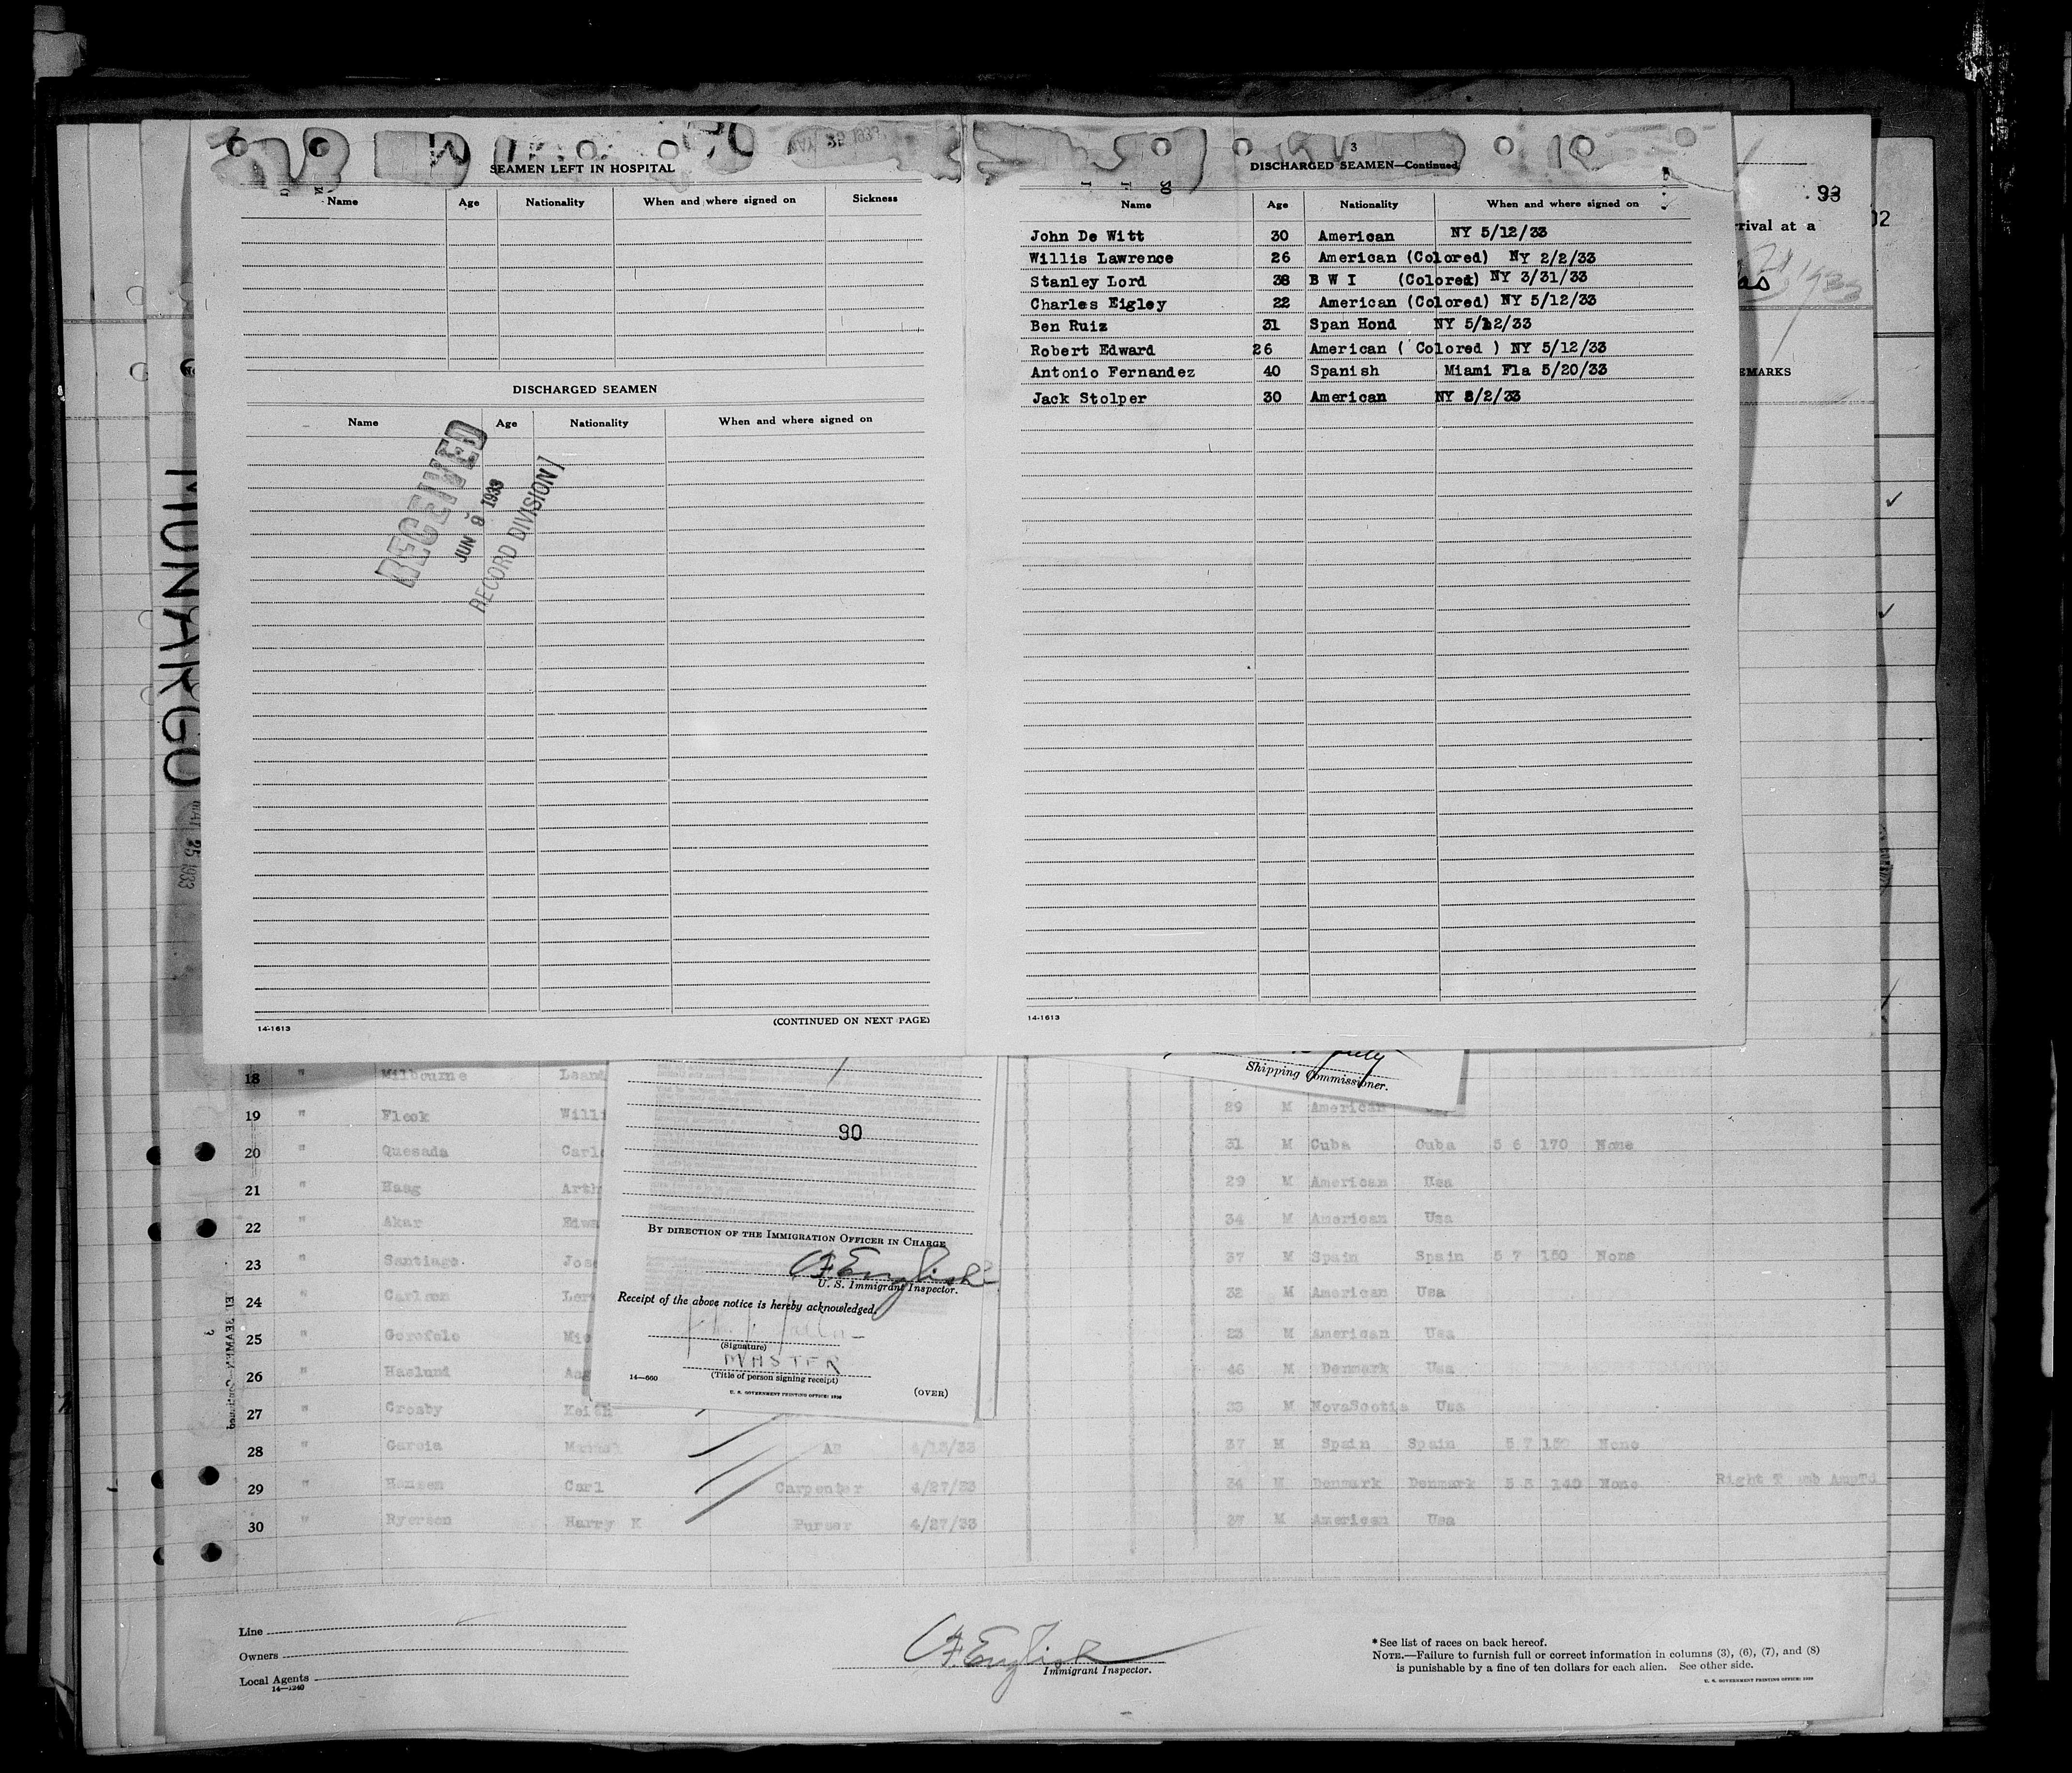 SEAMEN LEFT IN HOSPITAL
Name Age Nationality When and where signed on Sickness
DISCHARGED SEAMEN
Name Age Nationality When and where signed on
RECEIVED
JUN 9 1933
RECORD DIVISION
14-1613
(CONTINUED ON NEXT PAGE)
3
DISCHARGED SEAMEN—Continued
Name Age Nationality When and where signed on
John De Witt 30 American NY 5/12/33
Willis Lawrence 26 American (Colored) NY 2/2/33
Stanley Lord 38 B W I (Colored) NY 3/31/33
Charles Eigley 22 American (Colored) NY 5/12/33
Ben Ruiz 31 Span Hond NY 5/12/33
Robert Edward 26 American ( Colored ) NY 5/12/33
Antonio Fernandez 40 Spanish Miami Fla 5/20/33
Jack Stolper 30 American NY 2/33
14-1613
93
rrival at a
02
EMARKS
MUNARGO
25 1933
Shipping Commissioner.
18 " Milbourne
19 " Fleck 29 M American
20 " Quesada 31 M Cuba Cuba 5 6 170 None
21 " Haag 29 M American Usa
22 " Akar 34 M American Usa
23 " Santiago 37 M Spain Spain 5 7 150 None
24 " Carlson 32 M American Usa
25 " Gorofolo 23 M American Usa
26 " Haslund 46 M Denmark Usa
27 " Crosby Keith 33 M NovaScotia Usa
28 " Garcia AB 4/12/33 37 M Spain Spain 5 7 150 None
29 " Hansen Carl Carpenter 4/27/33 34 M Denmark Denmark 5 5 140 None Right T mb AmpTd
30 " Ryerson Harry K Purser 4/27/33 27 M American Usa
90
BY DIRECTION OF THE IMMIGRATION OFFICER IN CHARGE
English
U. S. Immigrant Inspector.
Receipt of the above notice is hereby acknowledged.
(Signature)
MASTER
(Title of person signing receipt)
14—660
U. S. GOVERNMENT PRINTING OFFICE: 1930
(OVER)
Line
Owners
Local Agents
14—1240
English
Immigrant Inspector.
* See list of races on back hereof.
NOTE.—Failure to furnish full or correct information in columns (3), (6), (7), and (8)
is punishable by a fine of ten dollars for each alien. See other side.
U. S. GOVERNMENT PRINTING OFFICE: 1930